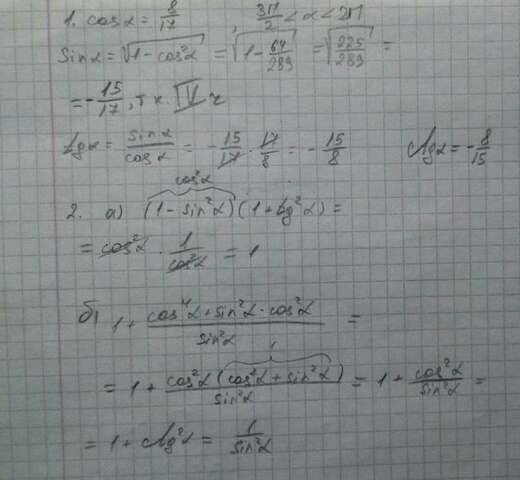 1. cosα = 8/17, 3π/2 < α < 2π
sinα = √(1 - cos²α) = √(1 - 64/289) = √(225/289) =
= -15/17, т.к. IV ч
tgα = sinα/cosα = -15/17 · 17/8 = -15/8 ctgα = -8/15
cos²α
2. а) (1 - sin²α)(1 + tg²α) =
= cos²α · 1/cos²α = 1
б) 1 + (cos⁴α + sin²α · cos²α)/sin²α =
1
= 1 + cos²α(cos²α + sin²α)/sin²α = 1 + cos²α/sin²α =
= 1 + ctg²α = 1/sin²α